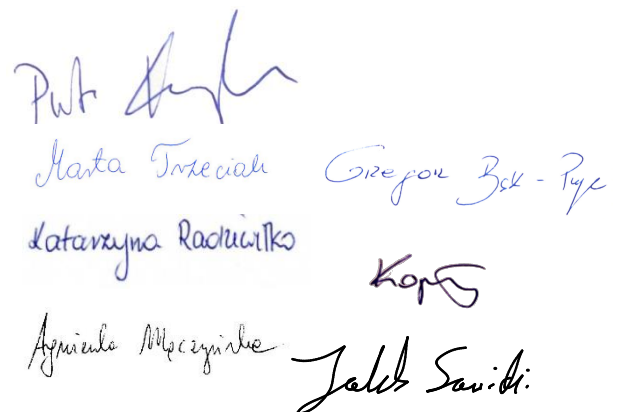 Piotr
Marta Trzeciak
Grzegorz Bąk -
Katarzyna Radziwiłko
Agnieszka Męczyńska
Jakub Sawicki